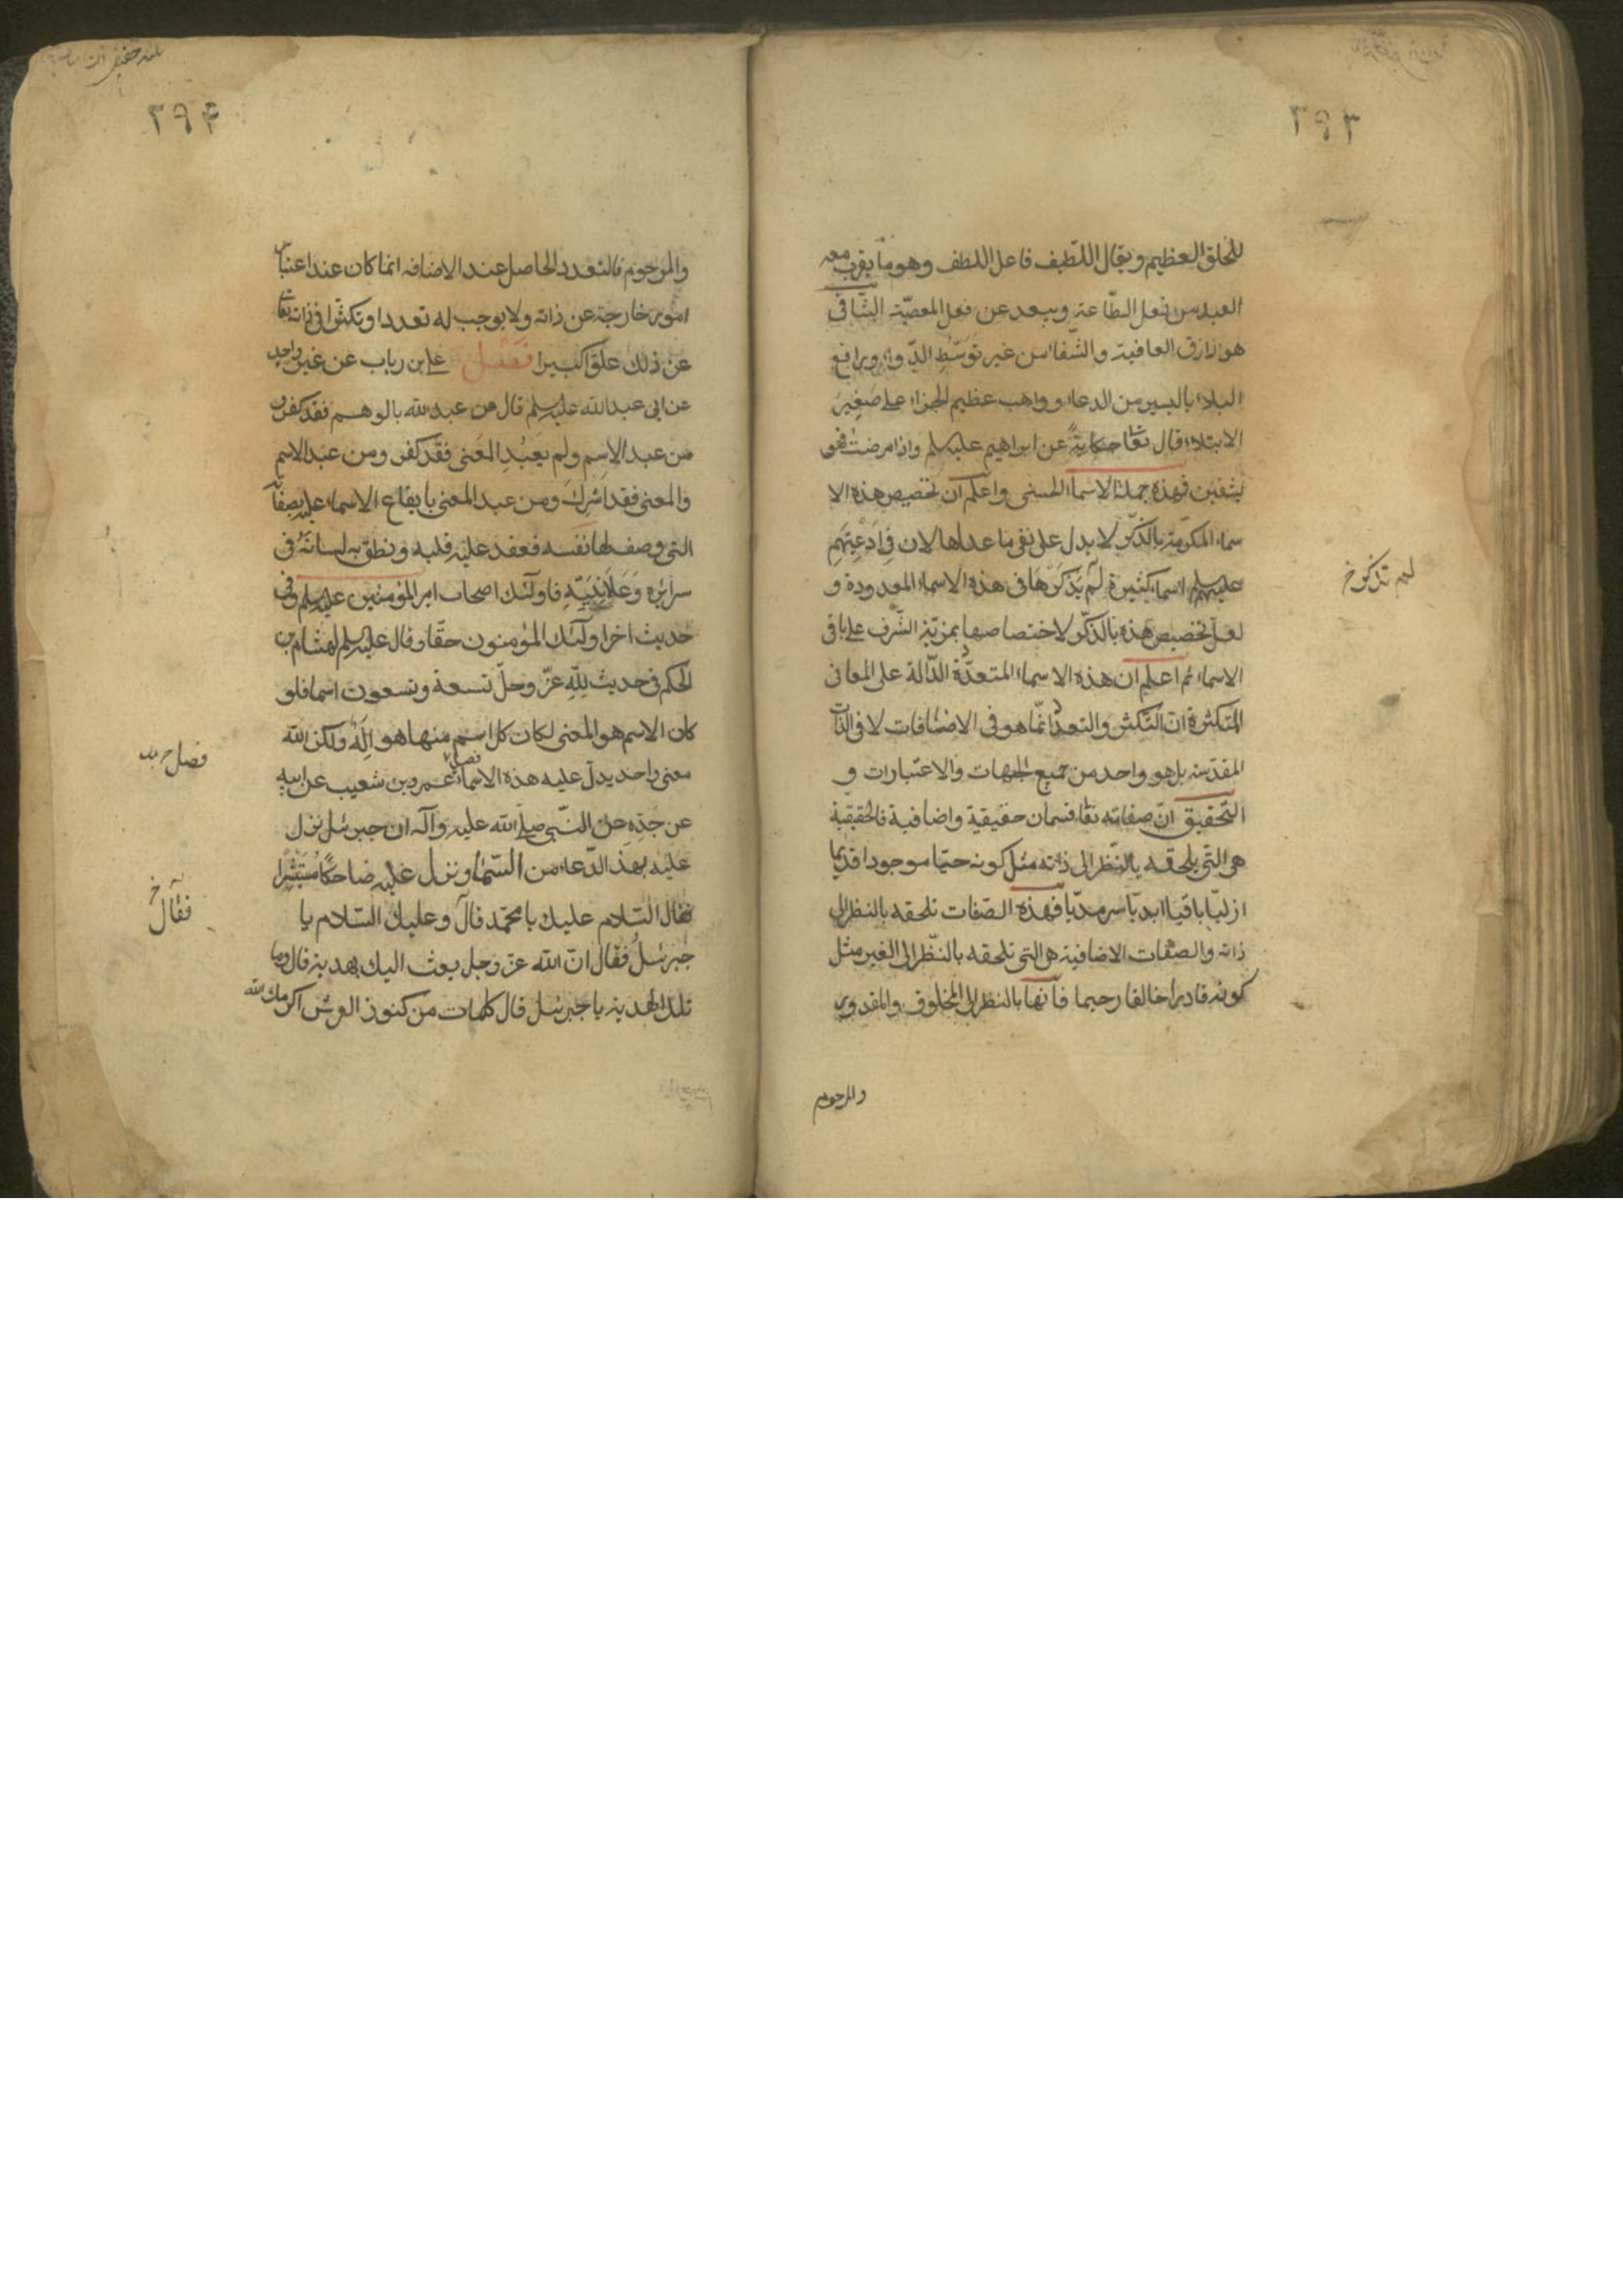 ٣٩٣
للخلق العظيم ويقال اللّطيف فاعل اللطف وهو ما يقرب معه
العبد من فعل الطّاعة ويبعد عن فعل المعصيّة الشافى
هو رازق العافية والشفاء من غير توسّطِ الدّواء ورافع
البلاء باليسير من الدعاء وواهب عظيم الجزاء على صغير
الابتلاء قال تعا حكايةً عن ابراهيم عليه السلم واذا مرضت فهو
يشفين فهذه جملة الاسماء الحسنى واعلم ان تخصيص هذه الا
سماء المكرّمة بالذكر لا يدل على نفى ما عداها لان فى ادعيتهم
عليهم السلم اسماء كثيرة لم يذكرها فى هذه الاسماء المعدودة و
لم تذكر خ
لعل تخصيص هذه بالذكر لاختصاصها بمزيّة الشّرف على باقى
الاسماء ثم اعلم ان هذه الاسماء المتعدّدة الدّالة على المعانى
المتكثرة انّ التّكثر والتعدد انّما هو فى الاضافات لا فى الذّات
المقدّسة بل هو واحد من جميع الجهات والاعتبارات و
التّحقيق انّ صفاته تعا قسمان حقيقية واضافية فالحقيقية
هى التى يلحقه بالنّظر الى ذاته مثل كونه حيّا موجودا قديما
ازليّا باقيا ابديّا سرمديّا فهذه الصّفات تلحقه بالنظر الى
ذاته والصفات الاضافية هى التى تلحقه بالنّظر الى الغير مثل
كونه قادرا خالقا رحيما فانها بالنظر الى المخلوق والمقدور
والمرحوم
٣٩۴
والمرحوم فالتعدد الحاصل عند الاضافه انما كان عند اعتبار
امور خارجة عن ذاته ولا يوجب له تعددا وتكثرا فى ذاته تعا
عن ذلك علوّا كبيرا فصل على بن رياب عن غير واحد
عن ابى عبدالله عليه السلم قال من عبد الله بالوهم فقد كفر و
من عبد الاسم ولم يعبُدِ المعنى فقد كفر ومن عبد الاسم
والمعنى فقد اشرك ومن عبد المعنى بايقاع الاسماء عليه بصفاته
التى وصف بها نفسه فعقد عليه قلبه ونطق به لسانهُ فى
سرائره وعَلَانِيَتِهِ فاولئك اصحاب امير المؤمنين عليه السلم وفى
حديث اخر اولئك المؤمنون حقّا وقال عليه السلم لهشام بن
الحكم فى حديث لِلّهِ عزّ وجلّ تسعة وتسعون اسما فلو
كان الاسم هو المعنى لكان كل اسم منها هو اِلٰهٌ ولكن الله
معنى واحد يدلّ عليه هذه الاسماء فصل عمرو بن شعيب عن ابيه
عن جَدِّهِ عن النّبى صلى الله عليه وآله ان جبرئيل نزل
عليه بهذ الدّعاء من السّماء ونزل عليه ضاحكًا مُستبشرًا
فقال السّلام عليك يا محمّد قال وعليك السّلام يا
فقال خ
جبرئيلُ فقال انّ الله عزّ وجل بعث اليك بهدية قال وما
تلك الهدية يا جبرئيل قال كلمات من كنوز العرش اكرمك الله